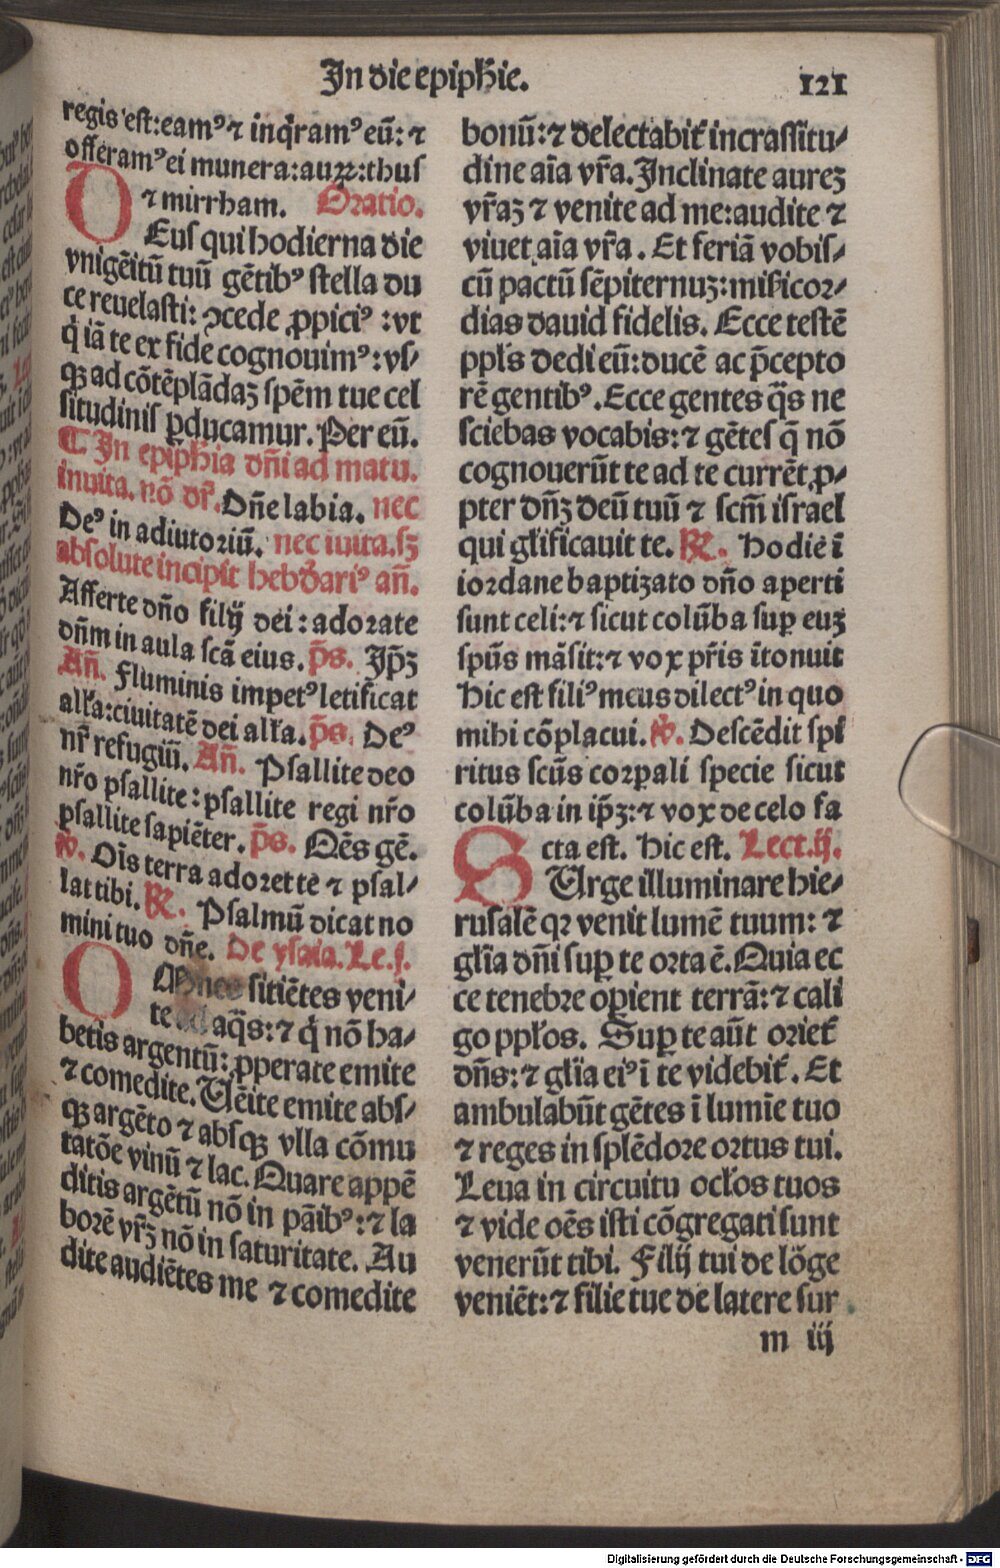 In die epiphie.
121
regis est: eamꝰ ⁊ inq̃ramꝰ eũ: ⁊
offeramꝰ ei munera: auꝝ: thus
⁊ mirrham. Oratio.
DEus qui hodierna die
vnigẽitũ tuũ gẽtibꝰ stella du
ce reuelasti: ꝯcede ꝓpiciꝰ: vt
q̇ iã te ex fide cognouimꝰ: vs/
qꝫ ad cõtẽplãdaꝫ spẽm tue cel
situdinis ꝑducamur. Per eũ.
¶ In epiphia dñi ad matu.
inuita. nõ dr̃. Dñe labia. nec
Deꝰ in adiutoriũ. nec iuita. sꝫ
absolute incipit hebđariꝰ añ.
Afferte dño filij dei: adorate
dñm in aula scã eius. p̃s. Ip̃ꝫ
Añ. Fluminis impetꝰ letificat
alłа: ciuitatẽ dei alła. p̃s. Deꝰ
nr̃ refugiũ. Añ. Psallite deo
nr̃o psallite: psallite regi nr̃o
psallite sapiẽter. p̃s. Oẽs gẽ.
℣. Oĩs terra adoret te ⁊ psal/
lat tibi. ℞. Psalmũ dicat no
mini tuo dñe. De ysaia. Le. j.
OMnes sitiẽtes veni/
te ad aq̃s: ⁊ q̇ nõ ha/
betis argentũ: ꝓperate emite
⁊ comedite. Uẽite emite abs/
qꝫ argẽto ⁊ absqꝫ vlla cõmu
tatõe vinũ ⁊ lac. Quare appẽ
ditis argẽtũ nõ in pãibꝰ: ⁊ la
borẽ vr̃ꝫ nõ in saturitate. Au
dite audiẽtes me ⁊ comedite
bonũ: ⁊ delectabit᷑ in crassitu/
dine aĩa vr̃a. Inclinate aureꝫ
vr̃aꝫ ⁊ venite ad me: audite ⁊
viuet aĩa vr̃a. Et feriã vobis/
cũ pactũ sẽpiternuꝫ: mis̃icor/
dias dauid fidelis. Ecce testẽ
ppľs dedi eũ: ducẽ ac p̃cepto
rẽ gentibꝰ. Ecce gentes q̃s ne
sciebas vocabis: ⁊ gẽtes q̃ nõ
cognouerũt te ad te currẽt, ꝓ/
pter dñꝫ deũ tuũ ⁊ scm̃ israel
qui gľificauit te. ℞. Hodie ĩ
iordane baptizato dño aperti
sunt celi: ⁊ sicut colũba suꝑ euꝫ
spũs mãsit: ⁊ vox pr̃is ĩtonuit
Hic est filiꝰ meus dilectꝰ in quo
mihi cõplacui. ℣. Descẽdit spi
ritus scũs corꝑali specie sicut
colũba in ip̃ꝫ: ⁊ vox de celo fa
cta est. Hic est. Lect. ij.
SUrge illuminare hie/
rusalẽ qꝛ venit lumẽ tuum: ⁊
gľia dñi suꝑ te orta ẽ. Quia ec
ce tenebre oꝑient terrã: ⁊ cali
go ppłos. Suꝑ te aũt oriet᷑
dñs: ⁊ gľia eiꝰ ĩ te videbit᷑. Et
ambulabũt gẽtes ĩ lumĩe tuo
⁊ reges in splẽdore ortus tui.
Leua in circuitu ocłos tuos
⁊ vide oẽs isti cõgregati sunt
venerũt tibi. Filij tui de lõge
veniẽt: ⁊ filie tue de latere sur
m iij
Digitalisierung gefördert durch die Deutsche Forschungsgemeinschaft - DFG